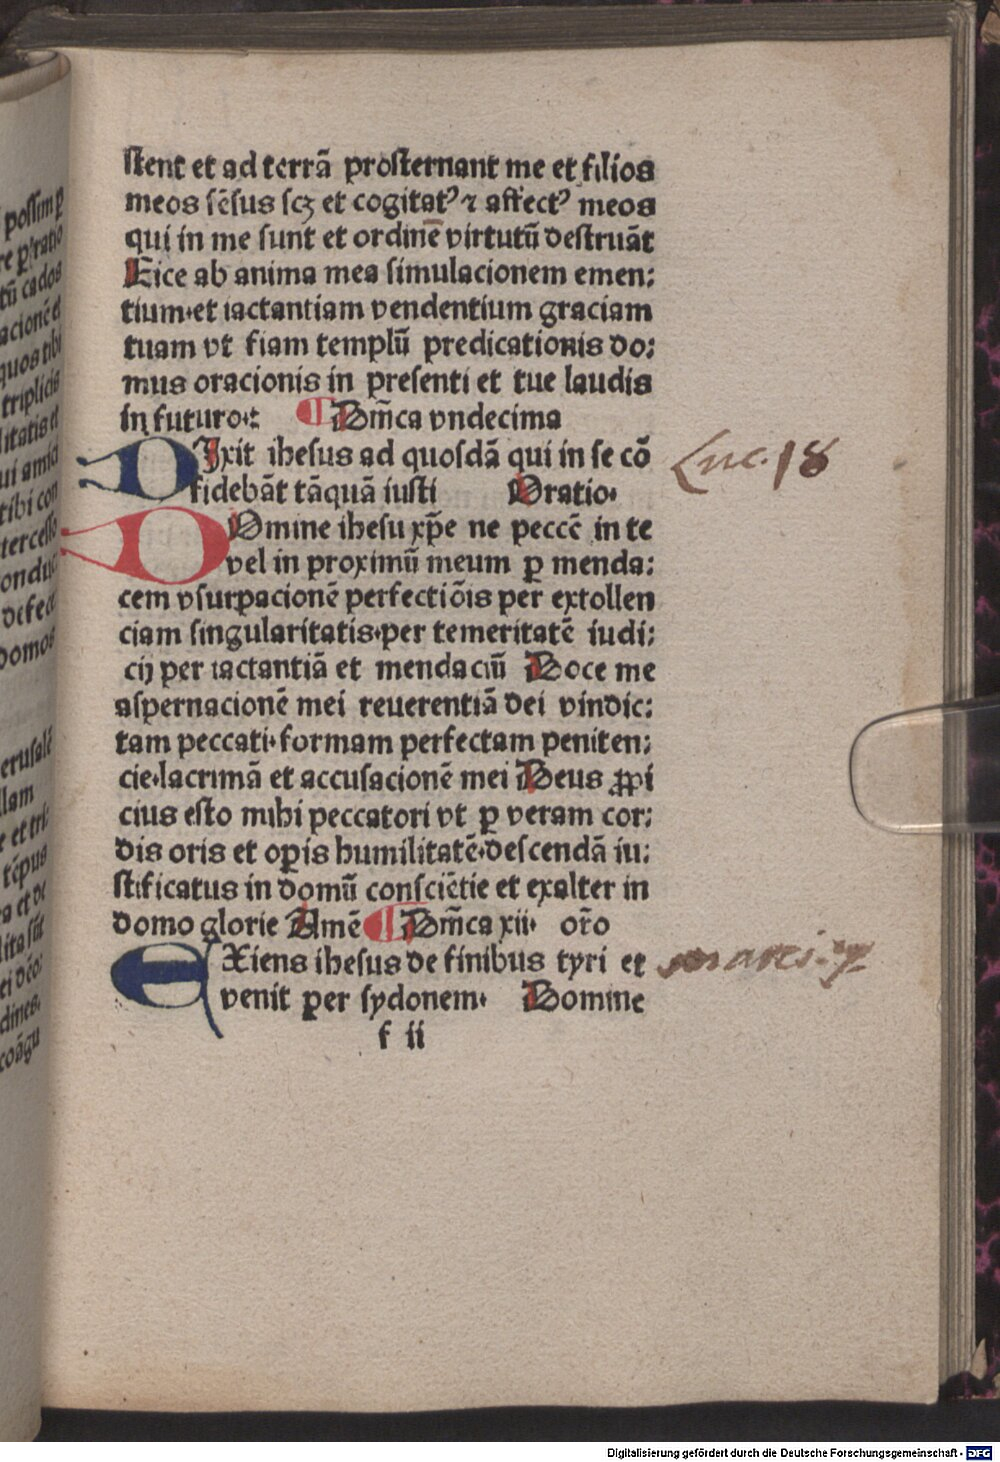 stent et ad terrã prosternant me et filios
meos sẽsus scʒ et cogitatꝰ ⁊ affectꝰ meos
qui in me sunt et ordinẽ virtutũ destruãt
Eice ab anima mea simulacionem emen:
tium·et iactantiam vendentium graciam
tuam vt fiam templũ predicationis do:
mus oracionis in presenti et tue laudis
in futuro·: ¶ Dm̃ca vndecima
DIxit ihesus ad quosdã qui in se cõ
fidebãt tãquã iusti Oratio·
DOmine ihesu xp̃e ne peccẽ in te
vel in proximũ meum ꝑ menda:
cem vsurpacionẽ perfectiõis per extollen
ciam singularitatis·per temeritatẽ iudi:
cij per iactantiã et mendaciũ Doce me
aspernacionẽ mei reuerentiã dei vindic:
tam peccati·formam perfectam peniten:
cie·lacrimã et accusacionẽ mei Deus ꝓpi
cius esto mihi peccatori vt ꝑ veram cor:
dis oris et oꝑis humilitatẽ·descendã iu:
stificatus in domũ consciẽtie et exalter in
domo glorie Amẽ ¶ Dm̃ca xii· or̃o
EXiens ihesus de finibus tyri et
venit per sydonem· Domine
f ii
Luc. 18
marci. 7
possim ꝑ
tũ cados
acionẽ et
quos tibi
triplicis
litatis et
ui amici
tibi con
tercessio
defec
domos
erusalẽ
llam
e et tri:
tẽpus
a et de
lita sũt
ei deo:
dines.
coãgu
Digitalisierung gefördert durch die Deutsche Forschungsgemeinschaft - DFG